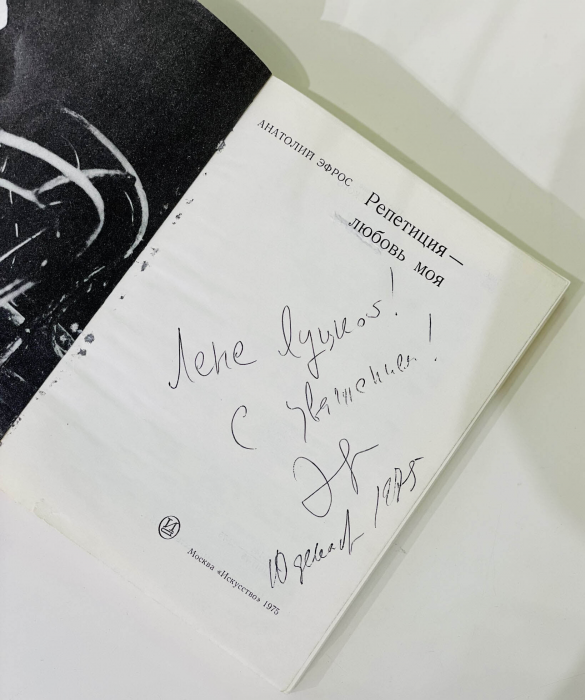 АНАТОЛИЙ ЭФРОС
Репетиция —
любовь моя
Лене Луцкой!
С уважением!
Эф
10 декаб 1975
Москва «Искусство» 1975